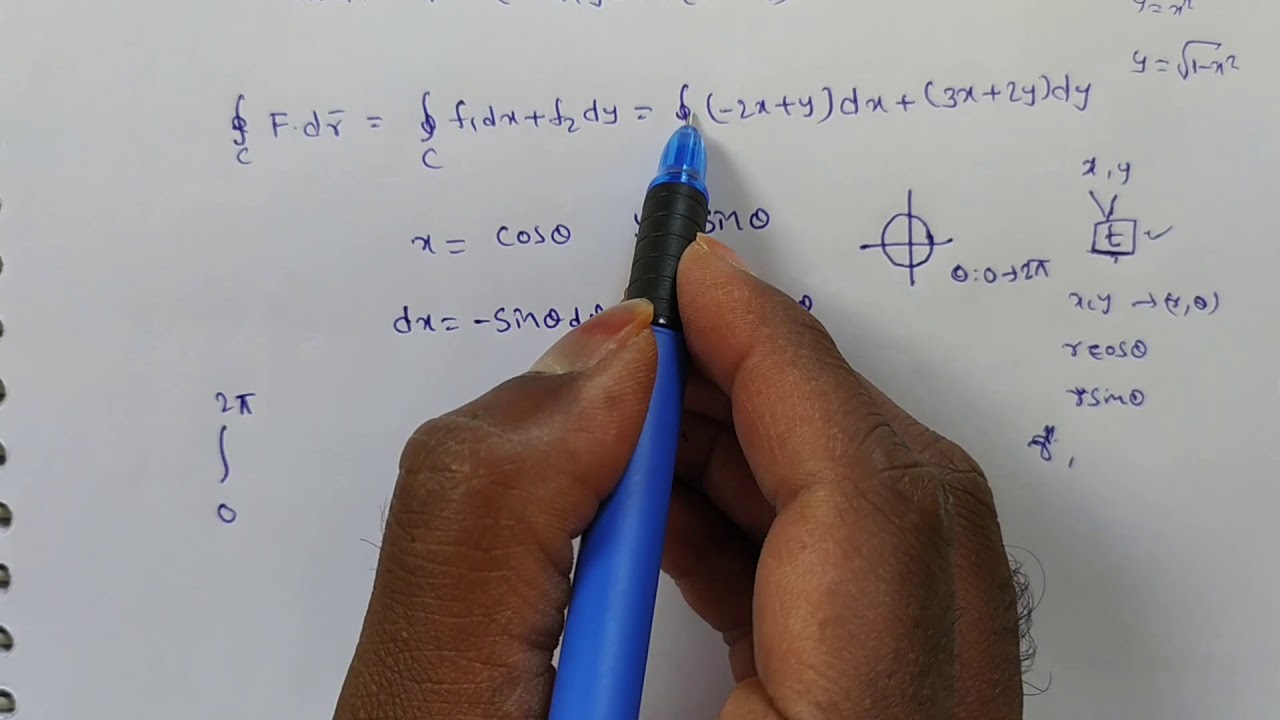 y=x²
y=√1-x²
∮ F.dr̅ = ∮ f₁dx+f₂dy = ∮(-2x+y)dx+(3x+2y)dy
C C
x,y
t ✓
x= cosθ sinθ
θ:0→2π
x,y →(r,θ)
dx=-sinθ
rcosθ
rsinθ
2π
∫
0